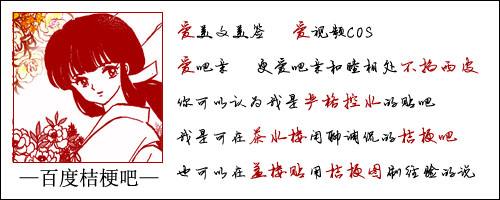 爱盖文盖签 爱视频COS
爱吧亲 更爱吧亲和睦相处不掐西皮
你可以认为我是半糖控水的贴吧
我是可在茶水楼闲聊调侃的桔梗吧
也可以在盖楼贴用桔梗图刷经验的说
—百度桔梗吧—